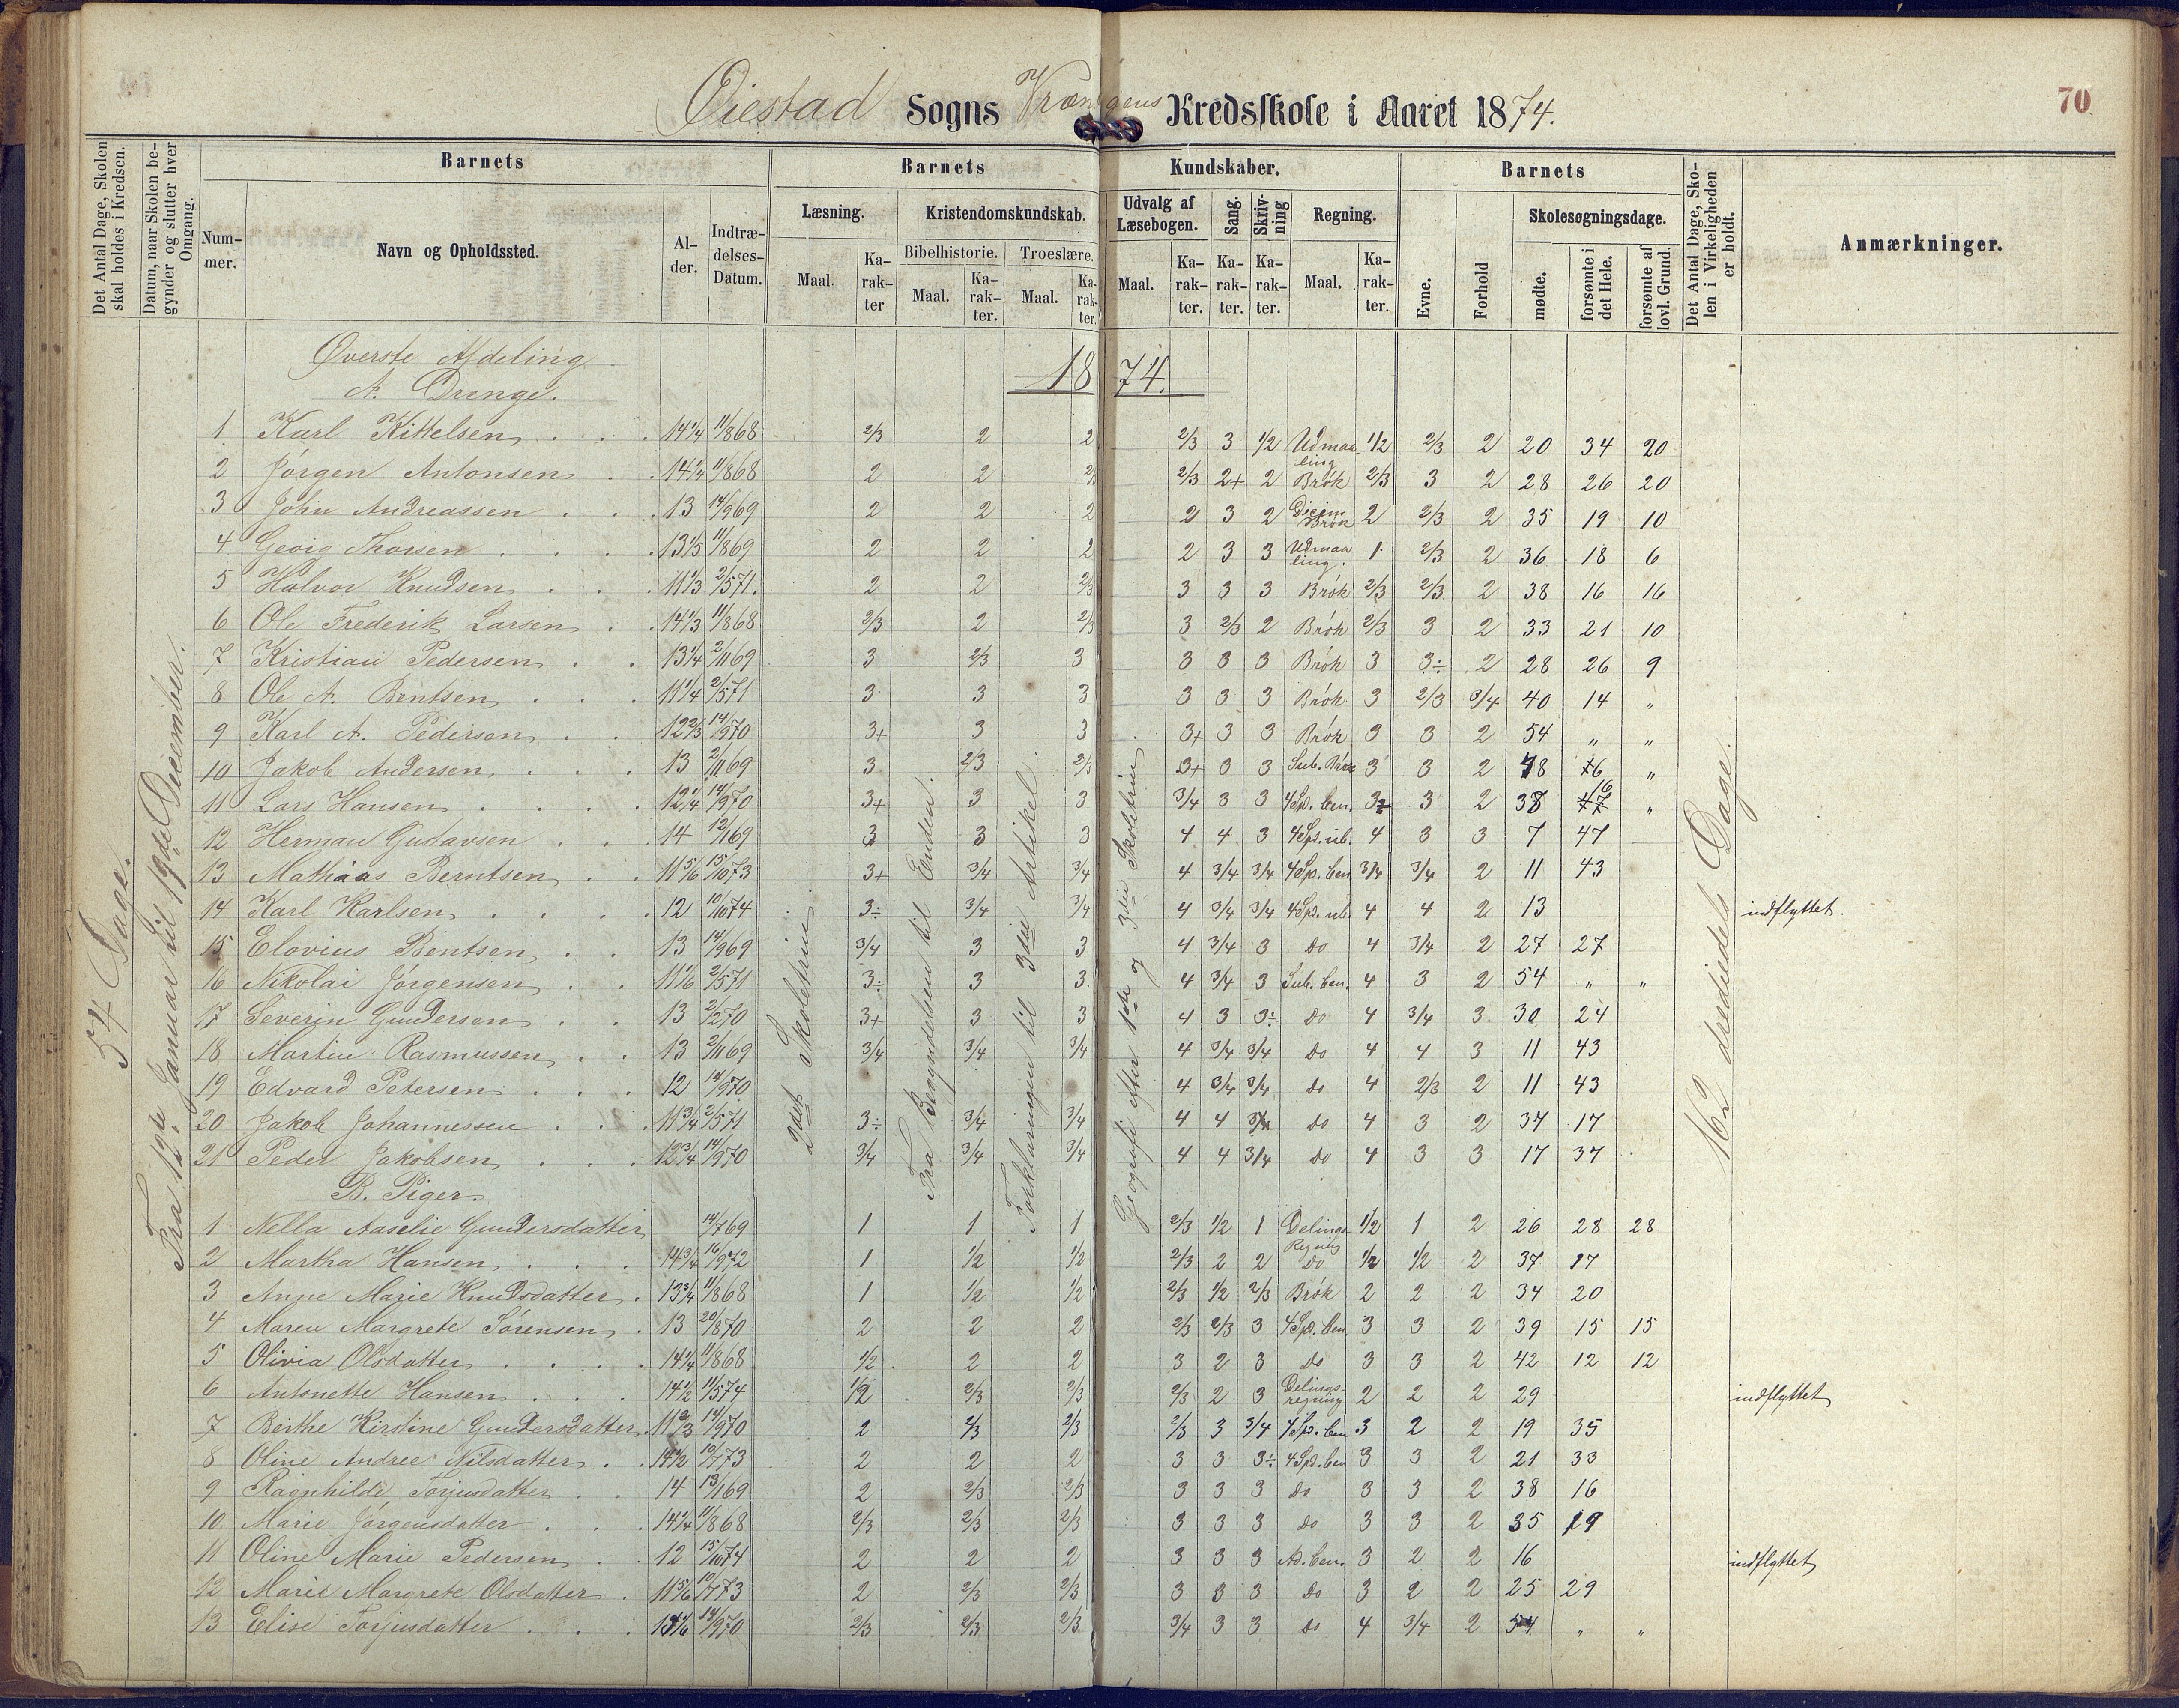 70
Øiestad Sogns Vrængens Kredsskole i Aaret 1874.
Det Antal Dage, Skolen skal holdes i Kredsen.
Datum, naar Skolen begynder og slutter hver Omgang.
Barnets
Barnets
Kundskaber.
Barnets
Det Antal Dage, Skolen i Virkeligheden er holdt.
Anmærkninger.
Nummer.
Navn og Opholdssted.
Alder.
Indtrædelses-Datum.
Læsning.
Kristendomskundskab.
Udvalg af Læsebogen.
Sang.
Skrivning
Regning.
Evne.
Forhold
Skolesøgningsdage.
Bibelhistorie.
Troeslære.
Maal.
Karakter
Maal.
Karakter.
Maal.
Karakter.
Maal.
Karakter.
Karakter.
Karakter.
Maal.
Karakter.
mødte.
forsømte i det Hele.
forsømte af lovl. Grund.
54 Dage.
Fra 12te Januar til 19de December.
2det Skoletrin.
Fra Begyndelsen til Enden.
Forklaringen til 3die Artikel
Geografi efter 1ste og 3die Skoletrin
162 drediedels Dage.
Øverste Afdeling
A. Drenge.
1874.
1 Karl Kittelsen 14 1/4 11/8 68 2/3 2 2 2/3 3 1/2 Udmaaling 1/2 2/3 2 20 34 20
2 Jørgen Antonsen 14 1/4 11/8 68 2 2 2/3 2/3 2+ 2 Brøk 2/3 3 2 28 26 20
3 John Andreassen 13 14/9 69 2 2 2 2 3 2 Decim Brøk 2 2/3 2 35 19 10
4 Georg Thorsen 13 1/5 11/8 69 2 2 2 2 3 3 Udmaaling. 1 2/3 2 36 18 6
5 Halvor Knudsen 11 1/3 2/5 71. 2 2 2/3 3 3 3 Brøk 2/3 2/3 2 38 16 16
6 Ole Frederik Larsen 14 1/3 11/8 68 2/3 2 2/3 3 2/3 2 Brøk 2/3 3 2 33 21 10
7 Kristian Pedersen 13 1/4 2/11 69 3 2/3 3 3 3 3 Brøk 3 3÷ 2 28 26 9
8 Ole A. Berntsen 11 1/4 2/5 71 3 3 3 3 3 3 Brøk 3 2/3 3/4 40 14 "
9 Karl A. Pedersen 12 2/3 14/9 70 3+ 3 3 3+ 3 3 Brøk 3 3 2 54 " "
10 Jakob Andersen 13 2/11 69 3 2/3 2/3 3+ 3 3 Sub. Brøk 3 3 2 48 6 "
11 Lars Hansen 12 1/4 14/9 70 3+ 3 3 3/4 3 3 4 Sp. ben. 3÷ 3 2 38 16 "
12 Herman Gustavsen 14 12/1 69 3 3 3 4 4 3 4 Sp. ub. 4 3 3 7 47
13 Mathias Berntsen 11 5/6 15/10 73 3+ 3/4 3/4 4 3/4 3/4 4 Sp. ben 3/4 3/4 2 11 43
14 Karl Karlsen 12 10/10 74 3÷ 3/4 3/4 4 3/4 3/4 4 Sp. ub. 4 4 2 13 indflyttet.
15 Elovius Bentsen 13 14/9 69 3/4 3 3 4 3/4 3 Do 4 3/4 2 27 27
16 Nikolai Jørgensen 11 1/6 2/5 71 3÷ 3 3. 4 3/4 3 Sub. ben. 4 3 2 54 " "
17 Severin Gundersen 13 2/2 70 3+ 3 3 4 3 3÷ Do 4 3/4 3 30 24
18 Martin Rasmussen 13 2/11 69 3/4 3/4 3/4 4 3/4 3/4 Do 4 4 3 11 43
19 Edvard Petersen 12 14/9 70 4 3/4 3/4 Do 4 2/3 2 11 43
20 Jakob Johannessen 11 3/4 2/5 71 3÷ 3/4 3/4 4 4 3/4 Do 4 3 2 37 17
21 Peder Jakobsen 12 3/4 14/9 70 3/4 3/4 3/4 4 4 3/4 Do 4 3 3 17 37
B. Piger.
1 Nella Aaselie Gundersdatter 14/7 69 1 1 1 2/3 1/2 1 Delings Regning 1/2 1 2 26 28 28
2 Martha Hansen 14 3/4 16/9 72 1 1/2 1/2 2/3 2 2 Do 1/2 1/2 2 37 17
3 Anne Marie Knudsdatter 13 3/4 11/8 68 1 1/2 1/2 2/3 1/2 2/3 Brøk 2 2 2 34 20
4 Maren Margrete Sørensen 13 20/8 70 2 2 2 2/3 2/3 3 4 Sp. ben 3 3 2 39 15 15
5 Olivia Olsdatter 14 1/4 11/8 68 1/2 2 2 3 2 3 Do 3 3 2 42 12 12
6 Antonette Hansen 14 1/2 11/5 74 1/2 2/3 2/3 2/3 2 3 Delings-regning 2 2 2 29 indflyttet
7 Berthe Kirstine Gundersdatter 11 2/3 14/9 70 2 2/3 2/3 2/3 3 3/4 4 Sp. ben 3 2 2 19 35
8 Oline Andree Nilsdatter 14 1/2 10/7 73 2 2 2 3 3 3÷ 4 Sp. ben 3 3 2 21 33
9 Ragnhilde Torjusdatter 14 13/1 69 2 2/3 2/3 3 3 3 Do 3 3 2 38 16
10 Marie Jørgensdatter 14 1/4 11/8 68 2/3 2/3 2/3 3 3 3 Do 3 3 2 35 19
11 Oline Marie Pedersen 12 15/10 74 2 2 2 3 3 3 Ad. ben. 3 2 2 16 indflyttet
12 Marie Margrete Olsdatter 11 5/6 10/7 73 2 2/3 2/3 3 3 3 Do 3 2 2 25 29
13 Elise Torjusdatter 14/9 70 2/3 2/3 2/3 3/4 3 3 Do 4 3/4 2 54 " "